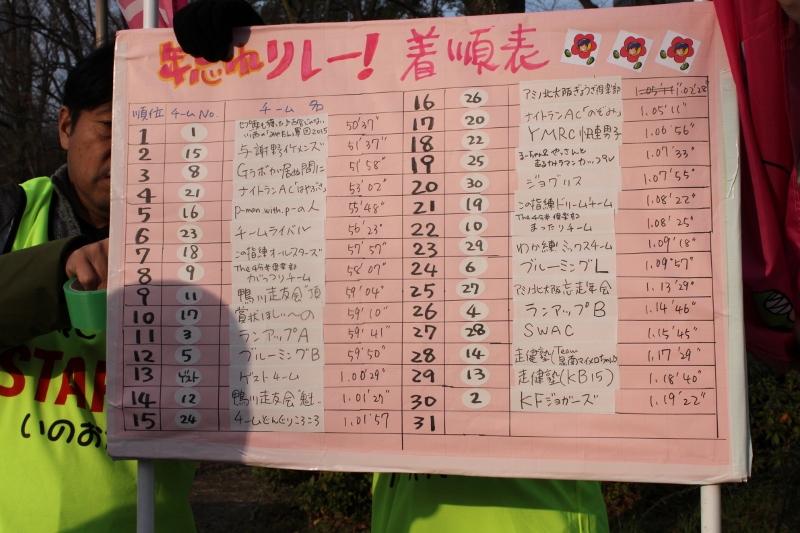 年忘れリレー! 着順表
順位 チームNo. チーム名
1 1 50'37"
2 15 与謝野イケメンズ 51'37"
3 8 51'58"
4 21 ナイトランAC「はやぶさ」 53'02"
5 16 P-man with P-の人 55'48"
6 23 チームライバル 56'23"
7 18 この指練オールスターズ 57'57"
8 9 The 4分半倶楽部 がっつりチーム 58'07"
9 11 鴨川走友会"頂 59'04"
10 17 賞状ほしい〜の 59'10"
11 3 ランアップA 59'41"
12 5 ブルーミングB 59'50"
13 ゲスト ゲストチーム 1.00'29"
14 12 鴨川走友会"魁 1.01'27"
15 24 チームどんぐりころころ 1.01'57
16 26 アミノ北大阪ぎょうざ倶楽部 1.02'28
17 20 ナイトランAC「のぞみ」 1.05'11"
18 22 YMRC快速男子 1.06'56"
19 25 1.07'33"
20 30 ジョグリス 1.07'55"
21 19 この指練ドリームチーム 1.08'22"
22 10 The 4分半倶楽部 まったりチーム 1.08'25"
23 29 わか練ミックスチーム 1.09'18"
24 6 ブルーミングL 1.09'57"
25 27 アミノ北大阪忘走年会 1.13'29"
26 4 ランアップB 1.14'46"
27 28 SWAC 1.15'45"
28 14 走健塾(Team 1.17'29"
29 13 走健塾(KB15) 1.18'40"
30 2 KFジョガーズ 1.19'22"
31
STAR
いのお